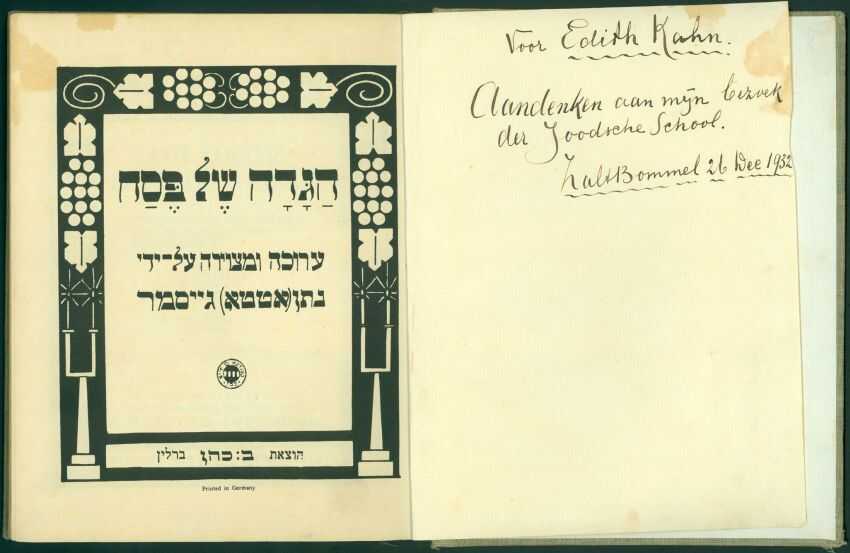 הַגָּדָה שֶׁל פֶּסַח
ערוכה ומצוירה על־ידי
נתן (אטטא) גייסמר
הוצאת ב: כהן ברלין
Printed in Germany
Voor Edith Kahn.
Aandenken aan mijn bezoek
der Joodsche School.
ZaltBommel 26 Dec 1932